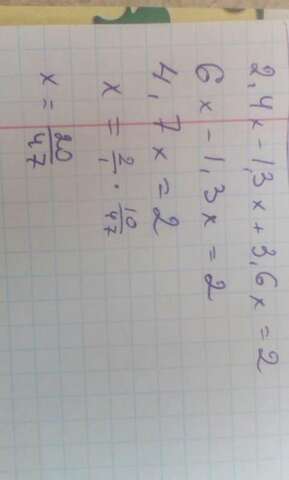 2,4x - 1,3x + 3,6x = 2
6x - 1,3x = 2
4,7x = 2
x = 2/1 · 10/47
x = 20/47